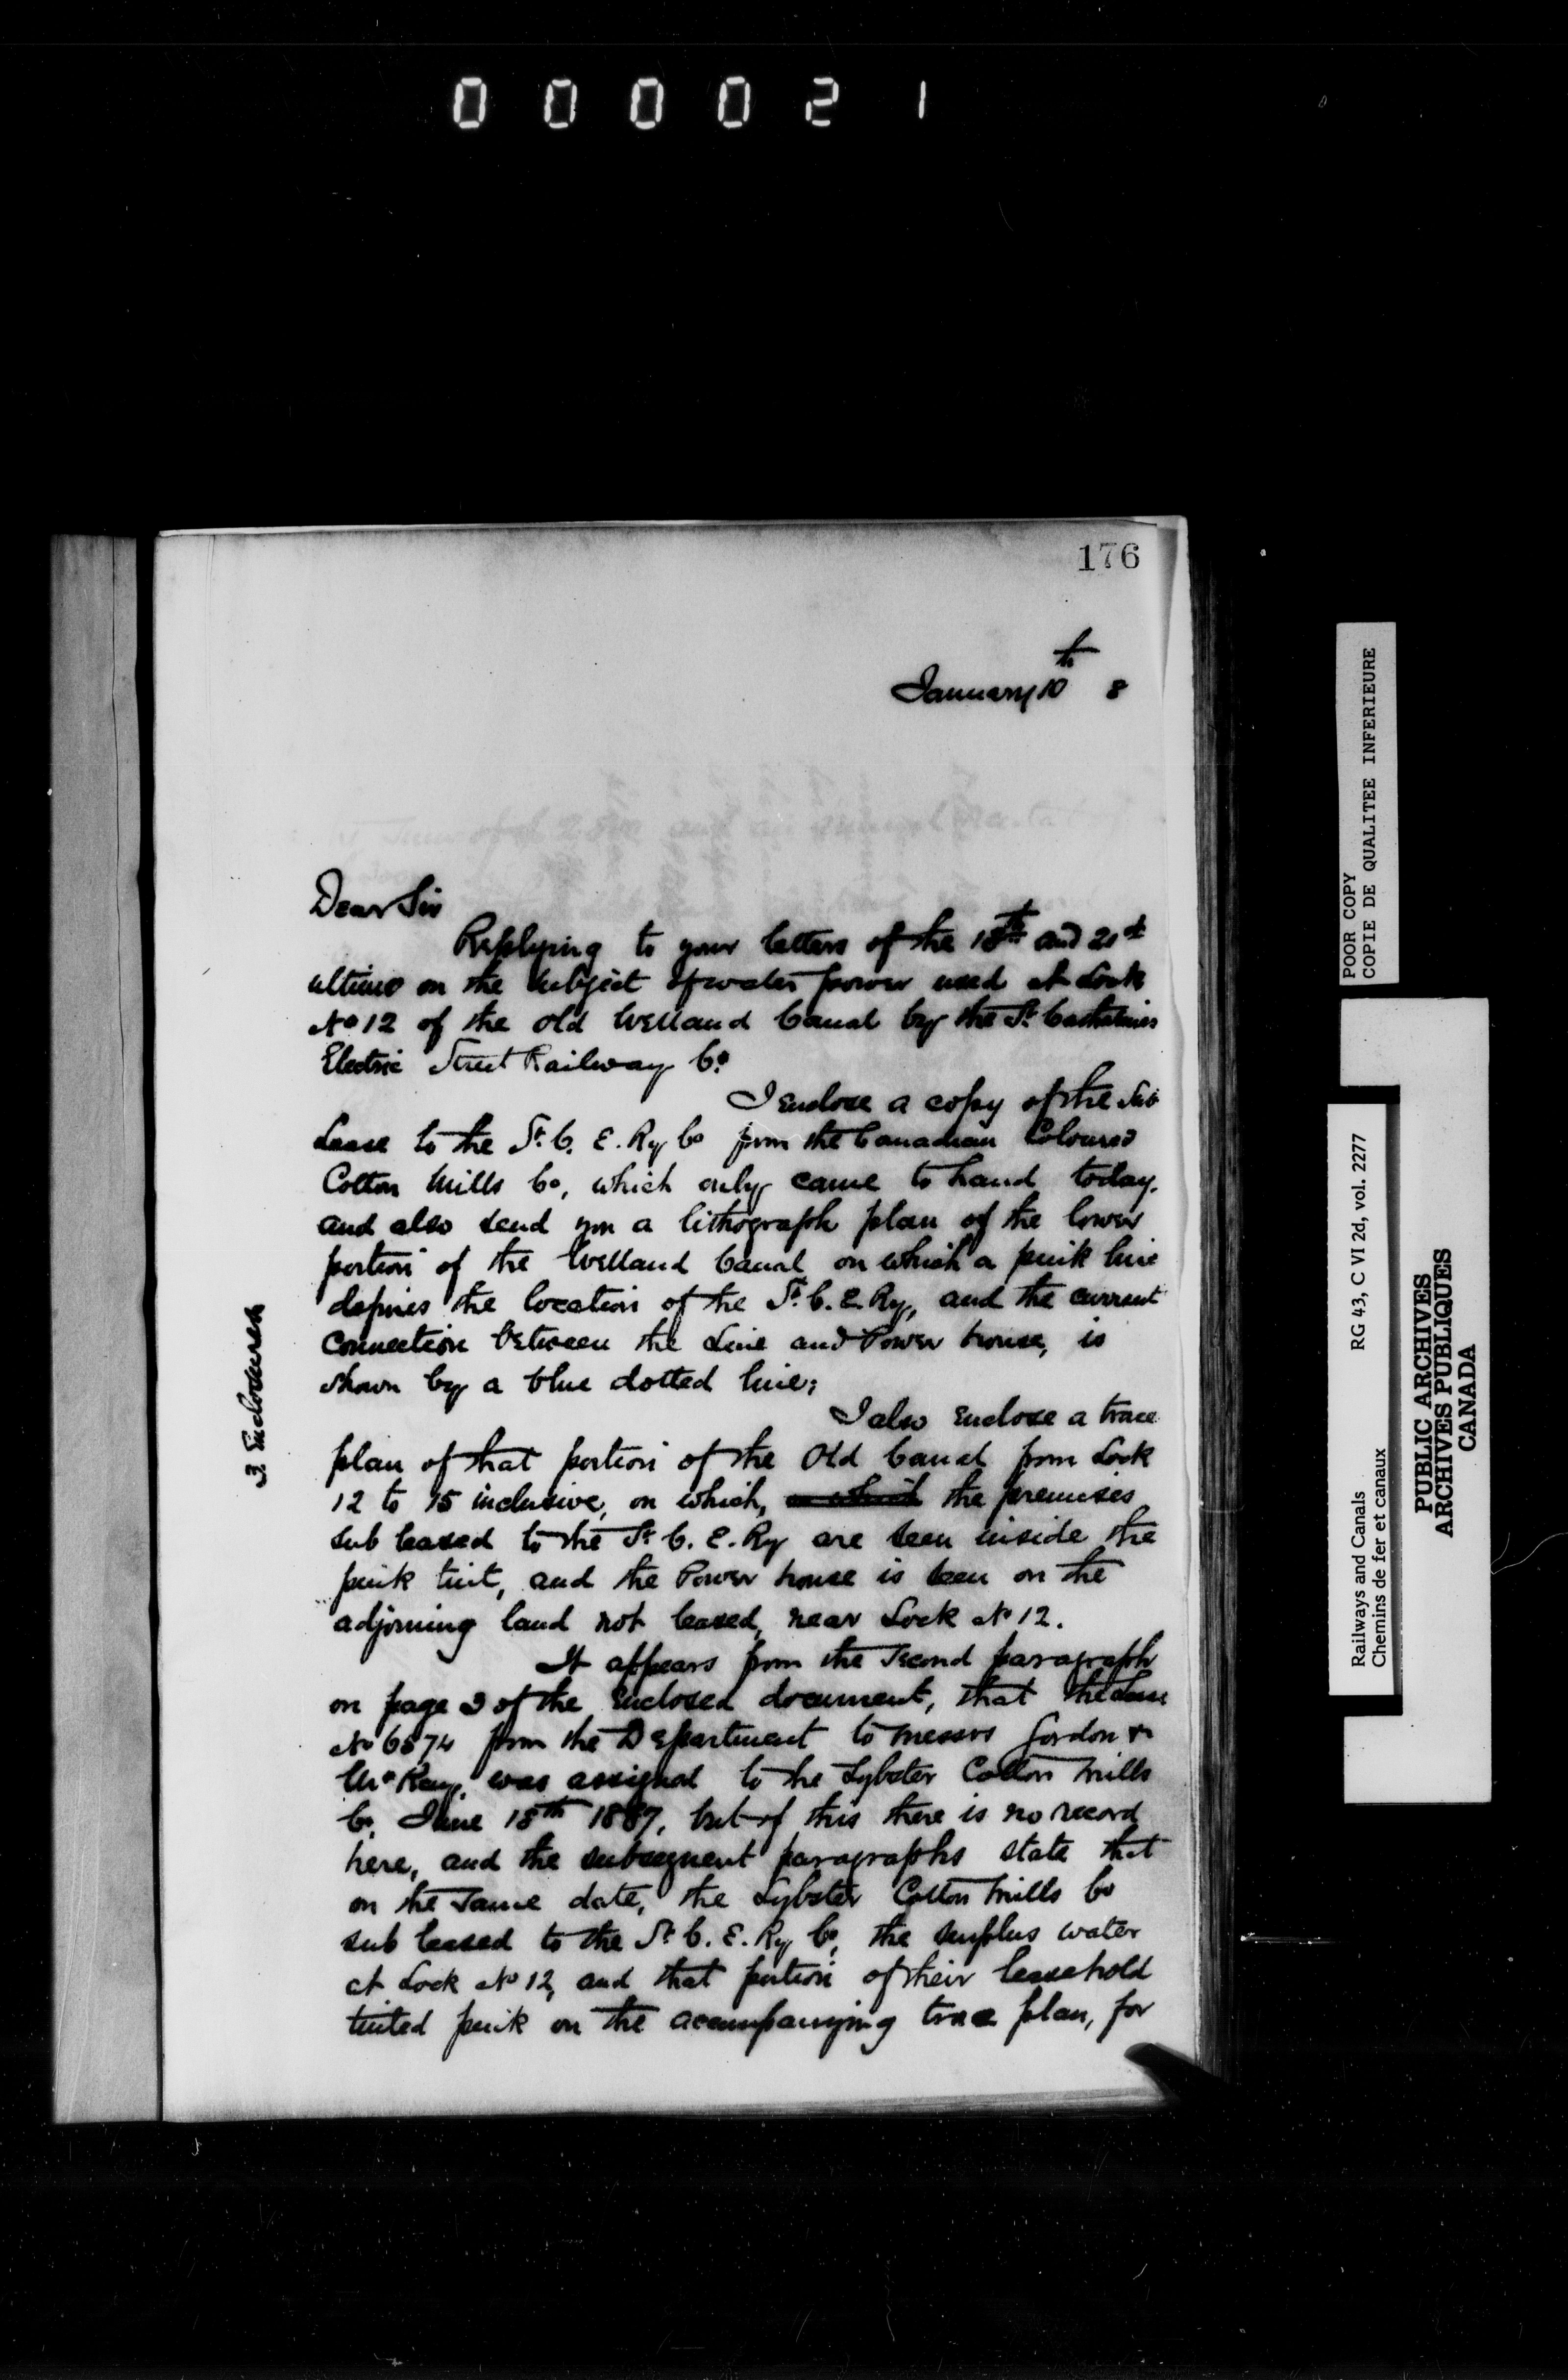 000021
176
January 10th 8
Dear Sir
Replying to your letters of the 18th and 21st
ultimo on the subject of water power used at Lock
No 12 of the old Welland Canal by the St. Catharines
Electric Street Railway Co.
I enclose a copy of the Sub
Lease to the St. C. E. Ry Co from the Canadian Coloured
Cotton Mills Co, which only came to hand today,
and also send you a lithograph plan of the lower
portion of the Welland Canal on which a pink line
defines the location of the St. C. E. Ry, and the current
connection between the Line and Power house, is
shown by a blue dotted line;
3 Enclosures
I also enclose a trace
plan of that portion of the Old Canal from Lock
12 to 15 inclusive, on which, on which the premises
sub leased to the St. C. E. Ry are seen inside the
pink tint, and the Power house is seen on the
adjoining land not leased, near Lock No 12.
It appears from the second paragraph
on page 3 of the enclosed document, that the Lease
No 6874 from the Department to Messrs Gordon &
McKay, was assigned to the Lybster Cotton Mills
Co. June 18th 1887, but of this there is no record
here, and the subsequent paragraphs state that
on the same date, the Lybster Cotton Mills Co
sub leased to the St. C. E. Ry Co, the surplus water
at Lock No 12, and that portion of their leasehold
tinted pink on the accompanying trace plan, for
POOR COPY
COPIE DE QUALITEE INFERIEURE
Railways and Canals RG 43, C VI 2d, vol. 2277
Chemins de fer et canaux
PUBLIC ARCHIVES
ARCHIVES PUBLIQUES
CANADA